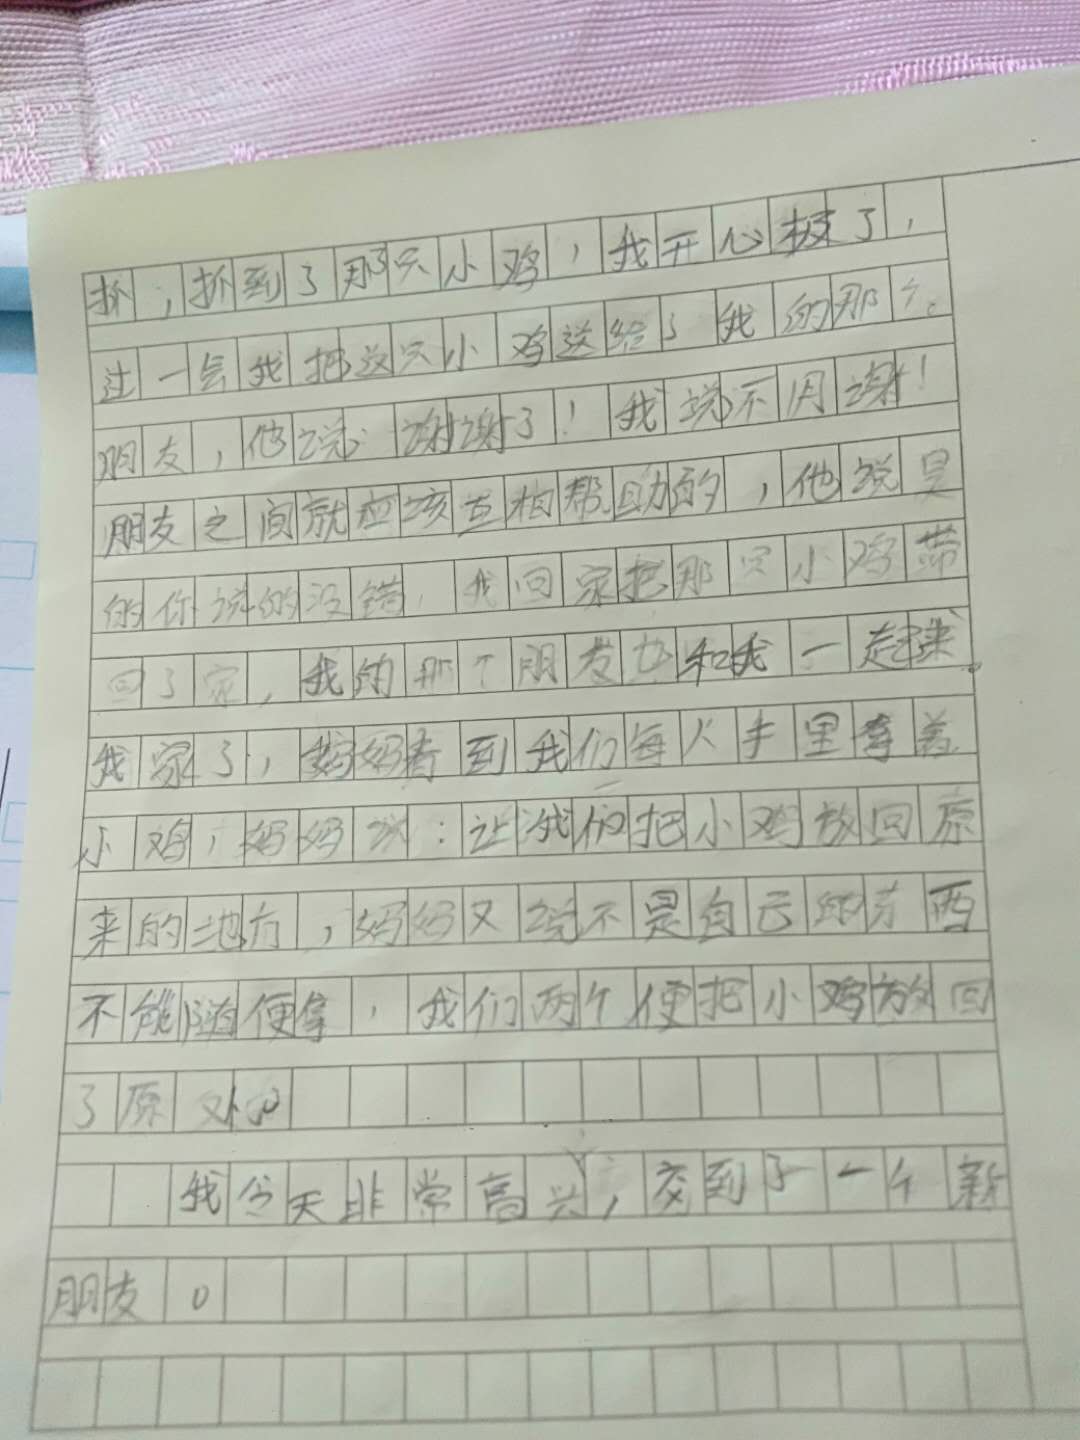 抓，抓到了那只小鸡，我开心极了，
过一会我把这只小鸡送给了我的那个
朋友，他说：谢谢了！我说不用谢！
朋友之间就应该互相帮助的，他说是
的你说的没错，我回家把那只小鸡带
回了家，我的那个朋友也和我一起来
我家了，妈妈看到我们每人手里拿着
小鸡，妈妈说：让我们把小鸡放回原
来的地方，妈妈又说不是自己的东西
不能随便拿，我们两个便把小鸡放回
了原处。
我今天非常高兴，交到了一个新
朋友。